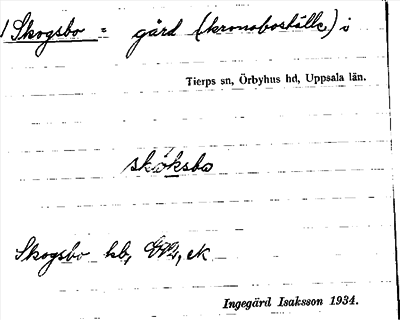 1 Skogsbo = gård (kronoboställe) i
Tierps sn, Örbyhus hd, Uppsala län.
skóksbo
Skogsbo kb, ek
Ingegärd Isaksson 1934.